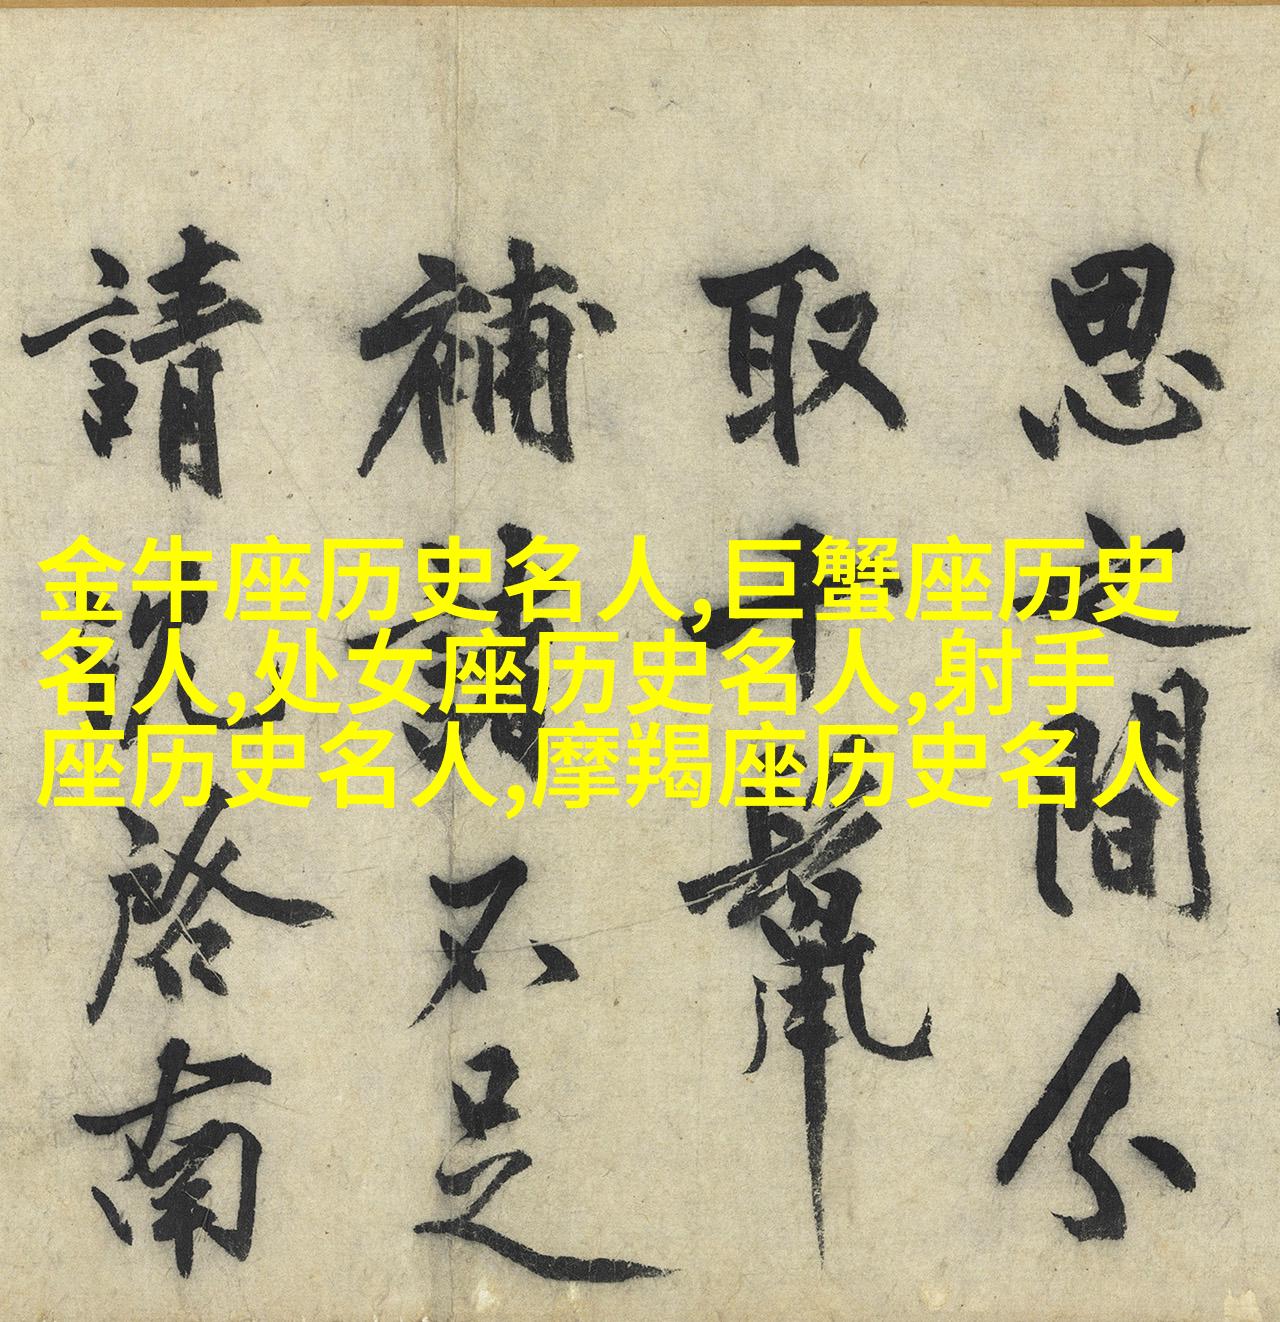 金牛座历史名人,巨蟹座历史
名人,处女座历史名人,射手
座历史名人,摩羯座历史名人
思之間分
取
補不足
請沈啓南